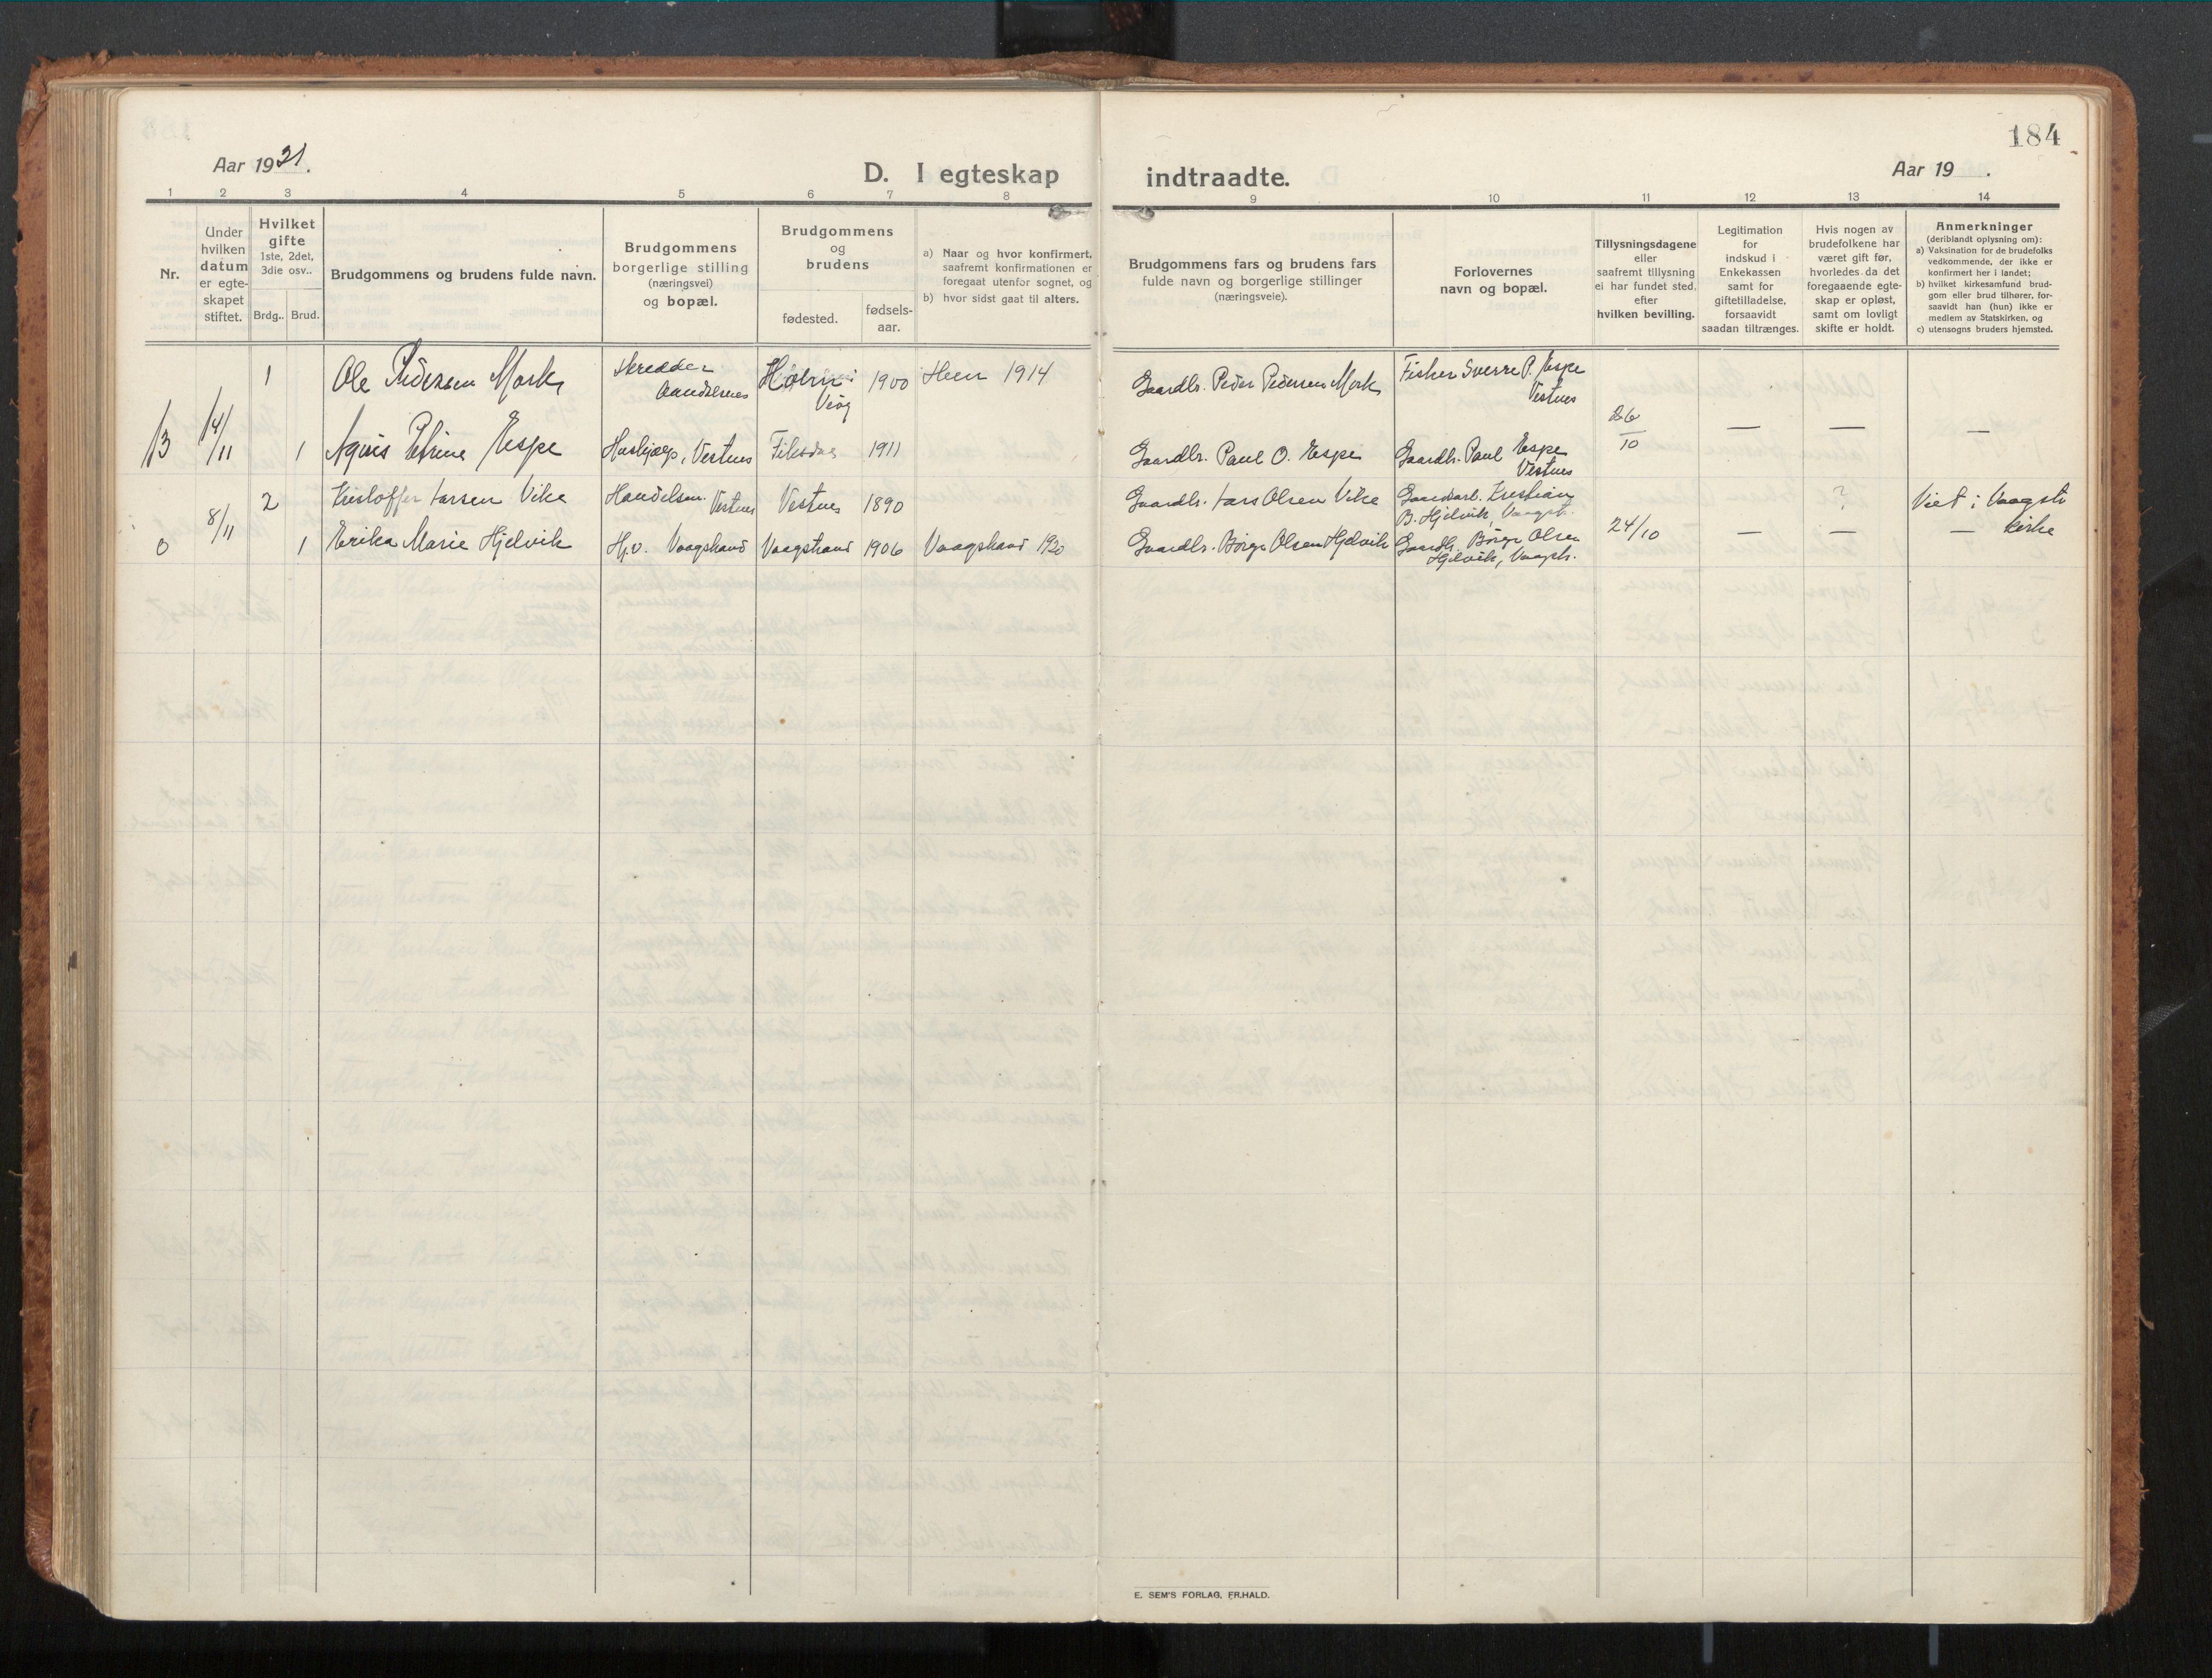 184
Aar 1931.
D. I egteskap
indtraadte.
Aar 19 .
1 2 3 4 5 6 7 8 9 10 11 12 13 14
Nr.
Under hvilken datum er egte-skapet stiftet.
Hvilket gifte 1ste, 2det, 3die osv..
Brdg.. Brud.
Brudgommens og brudens fulde navn.
Brudgommens borgerlige stilling (næringsvei) og bopæl.
Brudgommens og brudens
fødested.
fødsels-aar.
a) Naar og hvor konfirmert, saafremt konfirmationen er foregaat utenfor sognet, og
b) hvor sidst gaat til alters.
Brudgommens fars og brudens fars fulde navn og borgerlige stillinger (næringsveie).
Forlovernes navn og bopæl.
Tillysningsdagene eller saafremt tillysning ei har fundet sted, efter hvilken bevilling.
Legitimation for indskud i Enkekassen samt for giftetilladelse, forsaavidt saadan tiltrænges.
Hvis nogen av brudefolkene har været gift før, hvorledes da det foregaaende egte-skap er opløst, samt om lovligt skifte er holdt.
Anmerkninger (deriblandt oplysning om):
a) Vaksination for de brudefolks vedkommende, der ikke er konfirmert her i landet;
b) hvilket kirkesamfund brud-gom eller brud tilhører, for-saavidt han (hun) ikke er medlem av Statskirken, og
c) utensogns bruders hjemsted.
1 Ole Pedersen Mork, Skredder Aandalsnes Veøy 1900 Heen 1914 Gaardbr. Peder Pedersen Mork Fisker Sverre P. Espe Vestnes
13 14/11 1 Agnes Petrine Espe Hushjælp, Vestnes 1911 Gaardbr. Paul O. Espe Gaardbr. Paul Espe Vestnes 26/10 — — —
2 Kristoffer Larsen Vike Handelsm. Vestnes Vestnes 1890 Gaardbr. Lars Olsen Vike Kristian B. Hjelvik, Vaagst. ? Viet i Vaagstr.
0 8/11 1 Erika Marie Hjelvik Hj.v. Vaagstrand Vaagstrand 1906 Vaagstrand 1920 Gaardbr. Børge Olsen Hjelvik Gaardbr. Børge Olsen Hjelvik, Vaagstr. 24/10 — — — kirke
E. SEM'S FORLAG, FR.HALD.